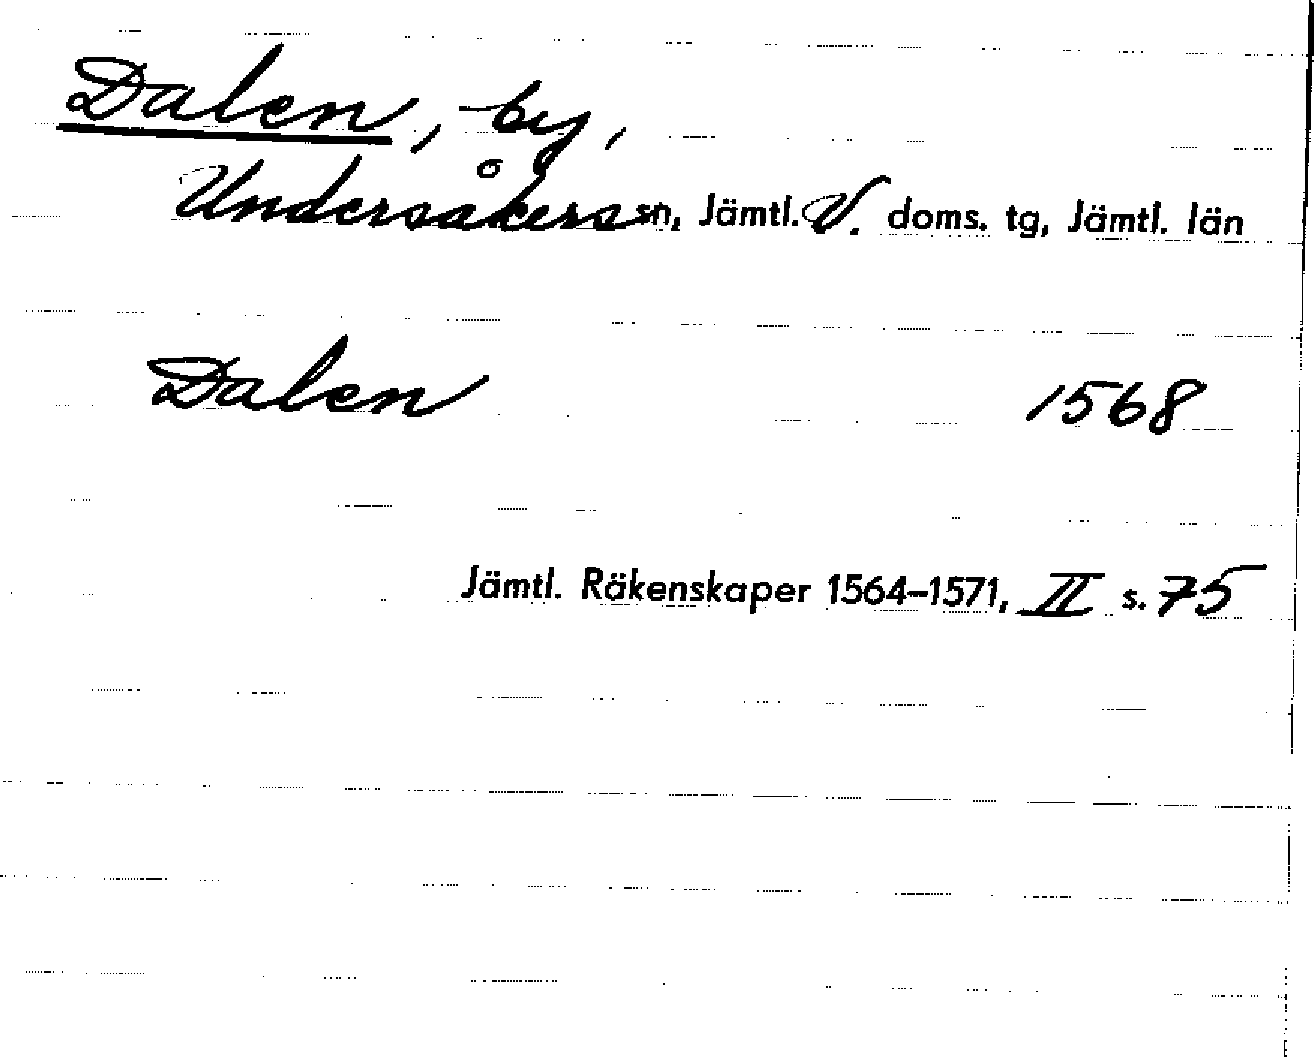 Dalen, by,
Undersåkers sn, Jämtl. V. doms. tg, Jämtl. län
Dalen 1568
Jämtl. Räkenskaper 1564–1571, II s. 75